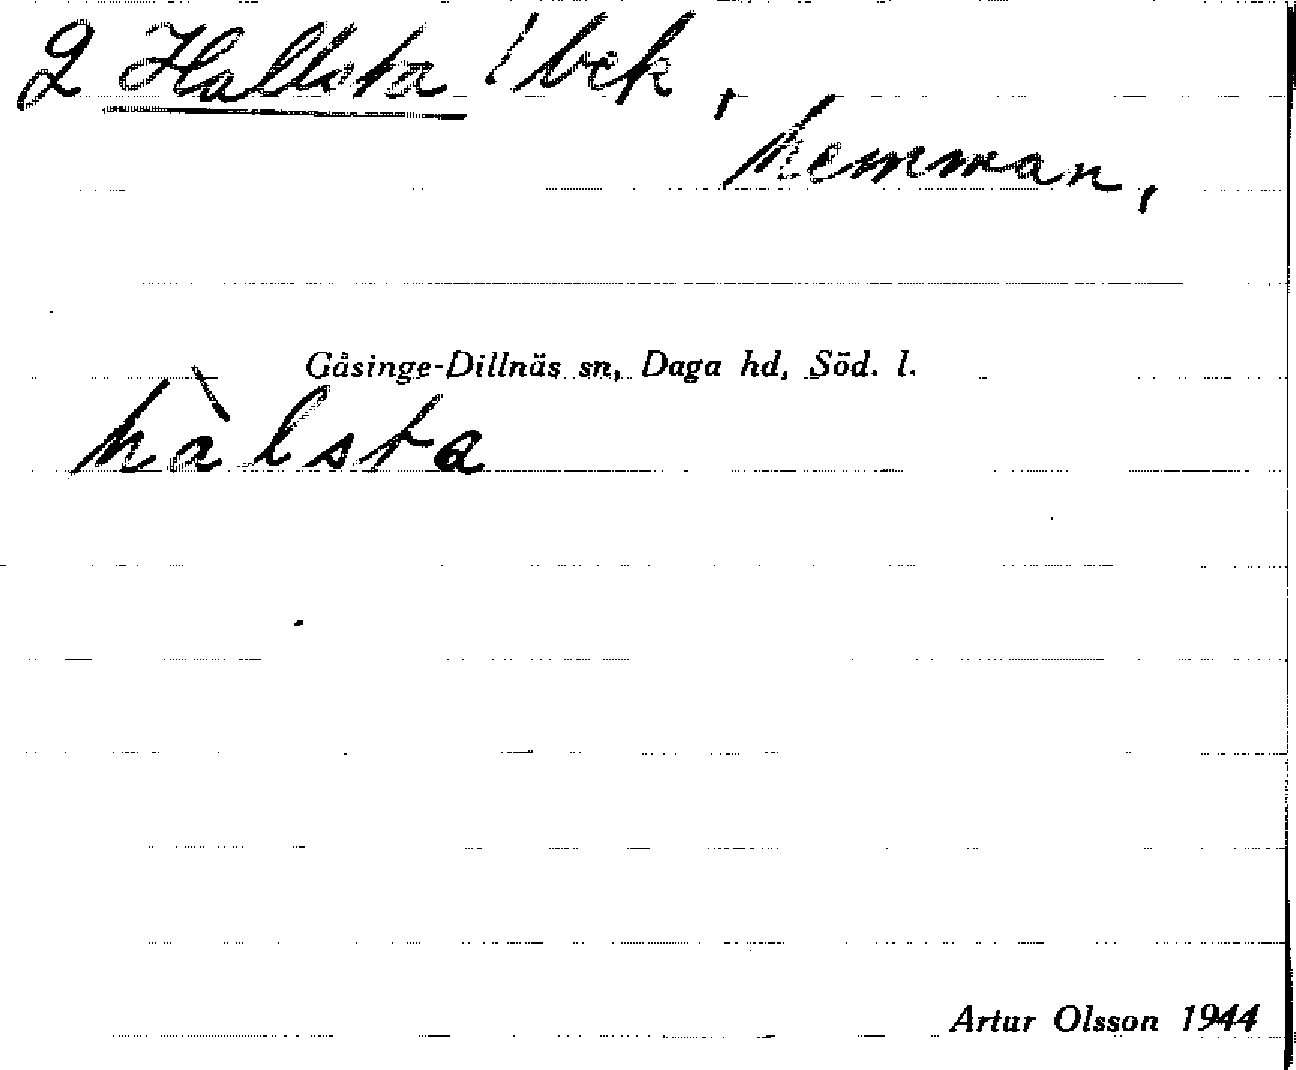 2 Hallsta ⁄ bek,
hemman,
Gåsinge-Dillnäs sn, Daga hd, Söd. l.
hàlsta
Artur Olsson 1944